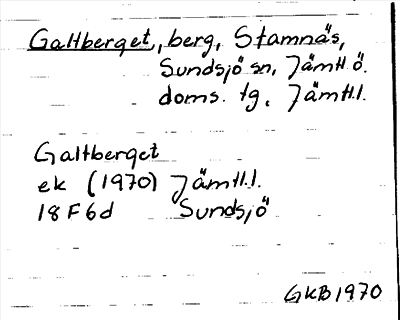 Galtberget, berg, Stamnäs,
Sundsjö sn, Jämtl. ö.
doms. tg, Jämtl.l.
Galtberget
ek (1970) Jämtl.l.
18F6d Sundsjö
GKB1970